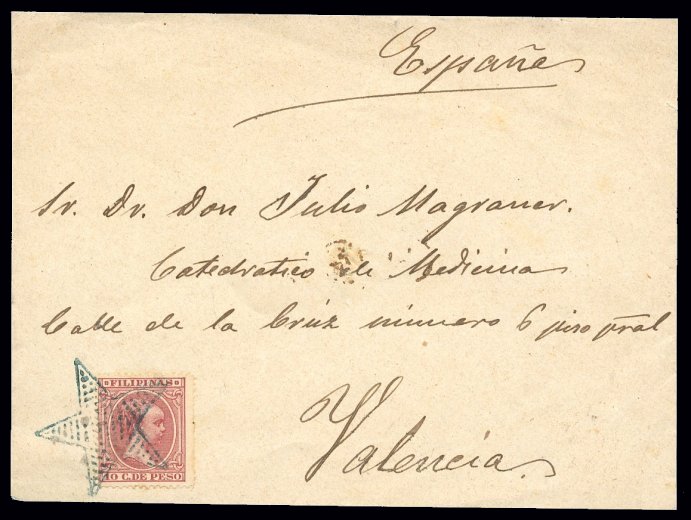 España
Sr. Dr. Don Julio Magraner.
Catedratico de Medicina
Calle de la Cruz numero 6 piso pral
Valencia
FILIPINAS
10 C. DE PESO